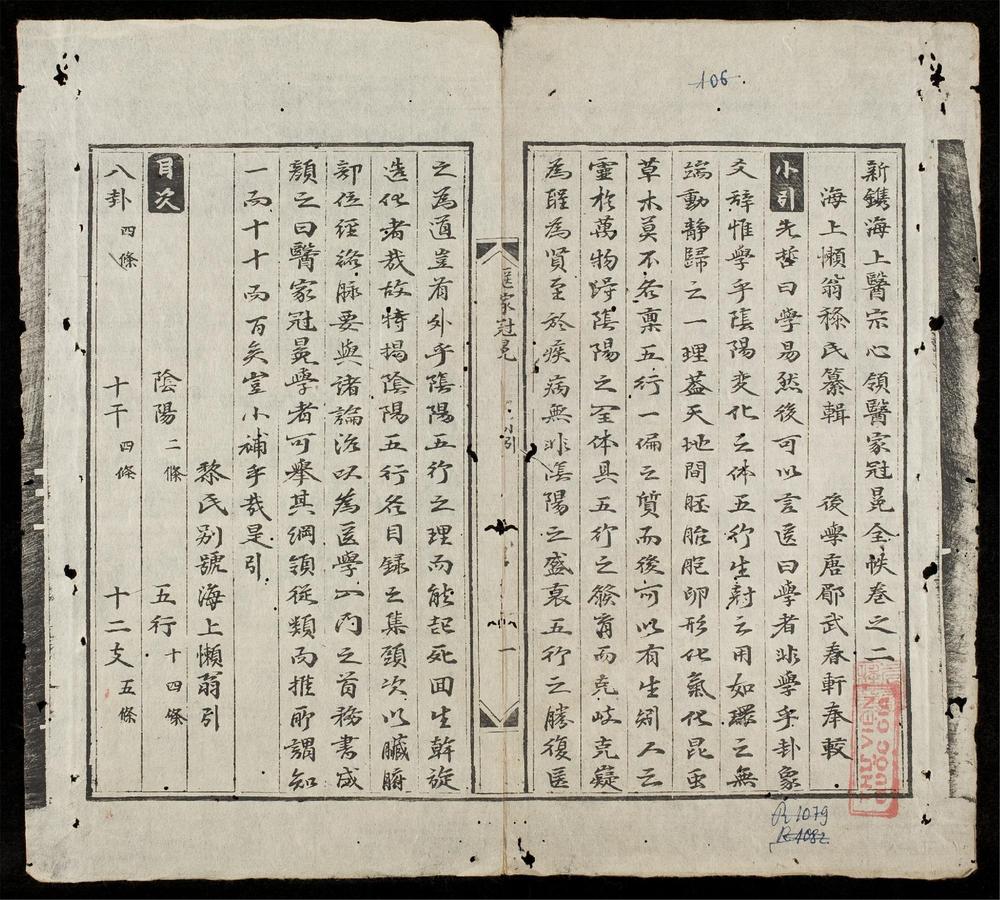 106
新鐫海上醫宗心領醫家冠冕全帙卷之二
海上懶翁黎氏纂輯 後學唐郿武春軒奉較
小引 先哲曰學易然後可以言医曰學者非學乎卦象
爻辞惟學乎陰陽变化之体五行生尅之用如環之無
端動静歸之一理葢天地間胚胎肥卵形化氣化昆虫
草木莫不各稟五行一偏之質而後可以有生矧人之
靈於萬物得陰陽之全体具五行之發育而克岐克嶷
為聖為賢至於疾病無非陰陽之盛衰五行之勝復医
醫家冠冕 小引 一
之為道豈有外乎陰陽五行之理而能起死回生斡旋
造化者哉故特揭陰陽五行各目録之集頭次以臟腑
部位經絡脉要與諸論治以為医學入門之首務書成
顏之曰醫家冠冕學者可舉其綱領從類而推所謂知
一而十十而百矣豈小補乎哉是引
黎氏别號海上懶翁引
目次 陰陽 二條 五行 十四條
八卦 四條 十干 四條 十二支 五條
THƯ VIỆN
QUỐC GIA
R1079
R1082